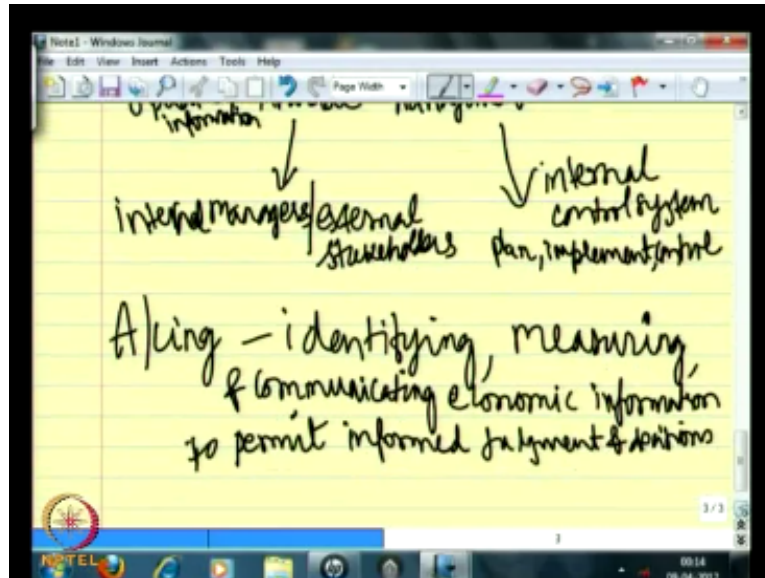 Note1 - Windows Journal
File Edit View Insert Actions Tools Help
Page Width
information
internal managers / external stakeholders
internal control system
plan, implement, control
A/cing - identifying, measuring,
& communicating economic information
to permit informed judgment & decisions
3 / 3
3
NPTEL
00:14
09-04-2012